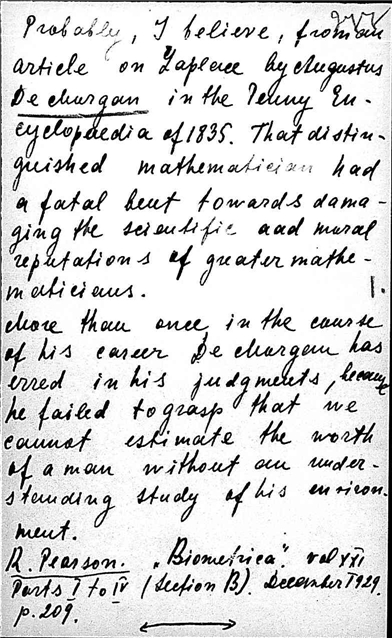 Probably, I believe, from an
article on Laplace by Augustus
De Morgan in the Penny En-
cyclopaedia of 1835. That distin-
guished mathematician had
a fatal bent towards dama-
ging the scientific and moral
reputations of greater mathe-
maticians. 1.
More than once in the course
of his career De Morgan has
erred in his judgments, because
he failed to grasp that we
cannot estimate the worth
of a man without an under-
standing study of his environ-
ment.
R. Pearson. „Biometrica". vol XXI
Parts I to IV (Section B). December 1929.
p. 209.